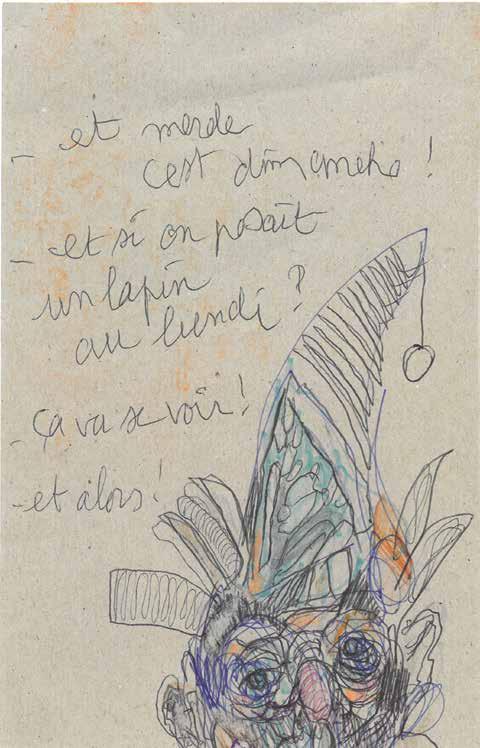 - et merde
c'est dimanche !
- et si on posait
un lapin
au lundi ?
- ça va se voir !
- et alors !